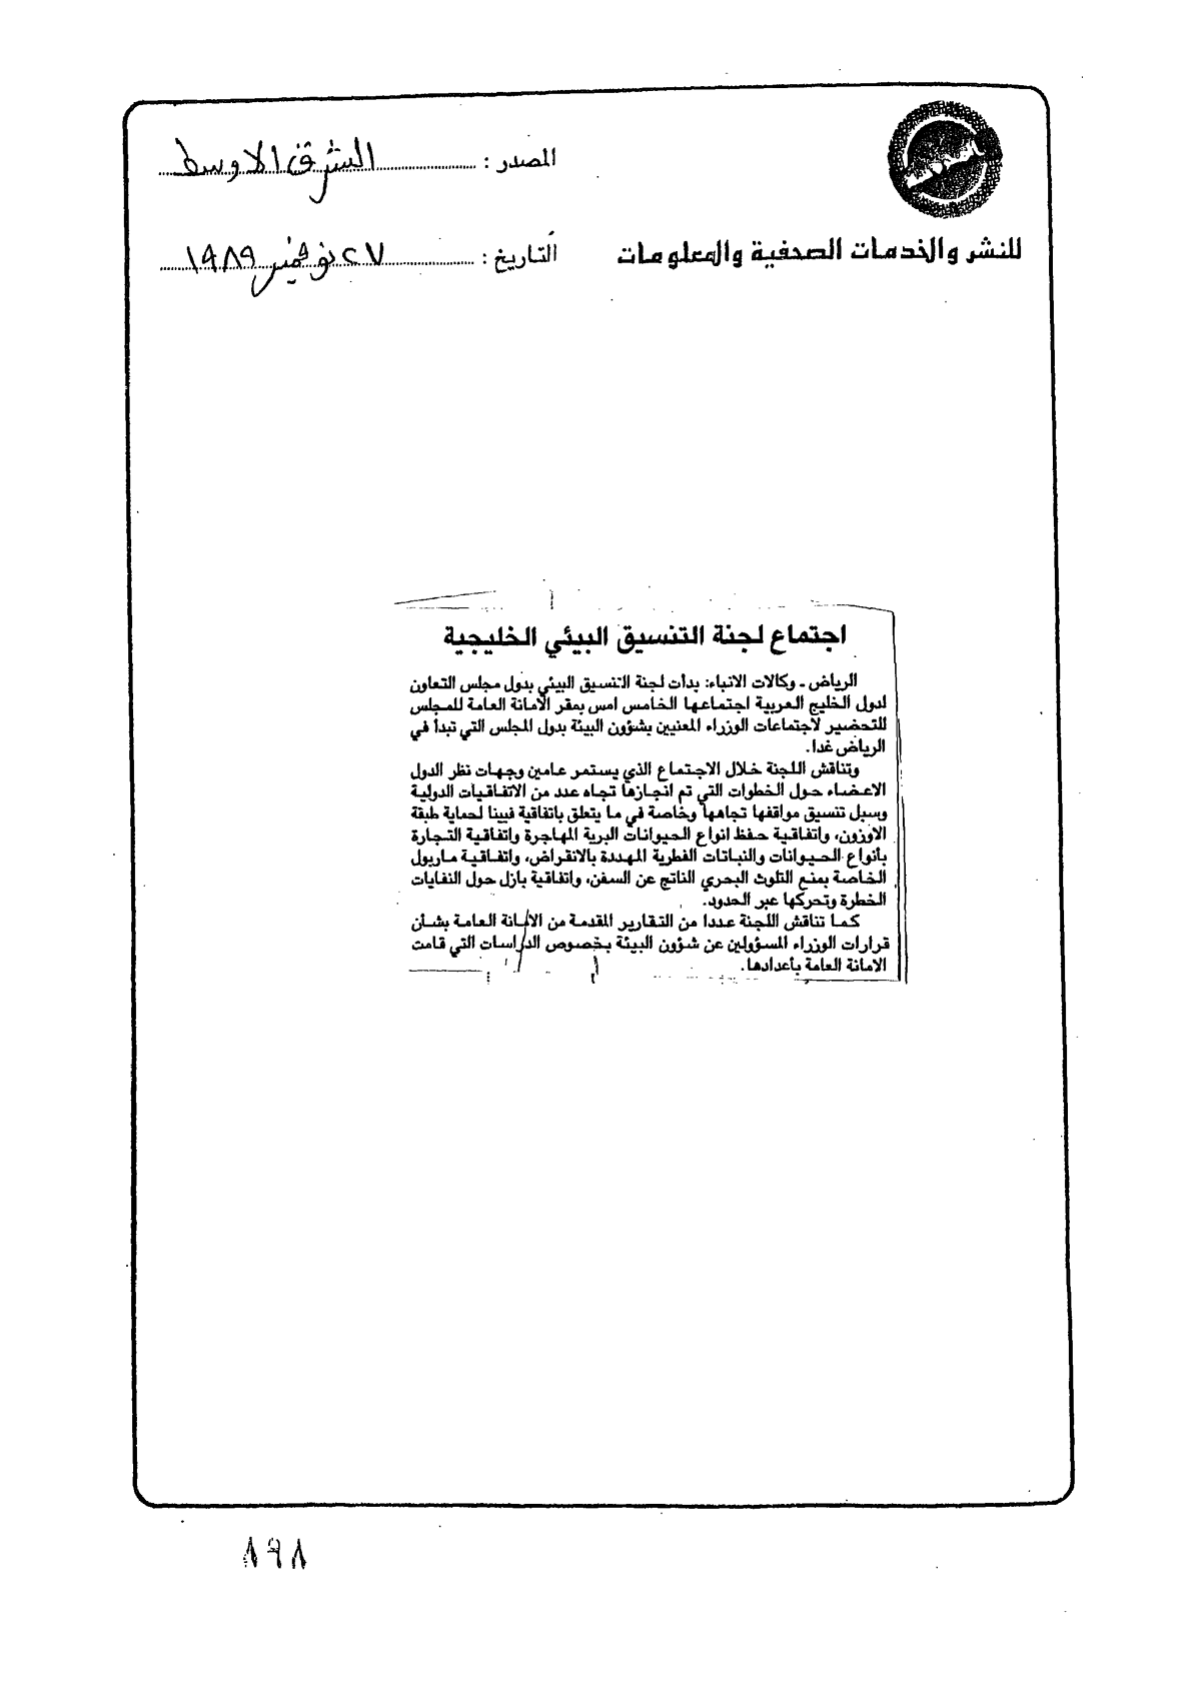 المصدر : الشرق الاوسط
للنشر والخدمات الصحفية والمعلومات
التاريخ : ٢٧ نوفمبر ١٩٨٩
اجتماع لجنة التنسيق البيئي الخليجية
الرياض ـ وكالات الانباء: بدأت لجنة التنسيق البيئي بدول مجلس التعاون
لدول الخليج العربية اجتماعها الخامس امس بمقر الأمانة العامة للمجلس
للتحضير لاجتماعات الوزراء المعنيين بشؤون البيئة بدول المجلس التي تبدأ في
الرياض غدا.
وتناقش اللجنة خلال الاجتماع الذي يستمر عامين وجهات نظر الدول
الاعضاء حول الخطوات التي تم انجازها تجاه عدد من الاتفاقيات الدولية
وسبل تنسيق مواقفها تجاهها وخاصة في ما يتعلق باتفاقية فيينا لحماية طبقة
الاوزون، واتفاقية حفظ انواع الحيوانات البرية المهاجرة واتفاقية التجارة
بأنواع الحيوانات والنباتات الفطرية المهددة بالانقراض، واتفاقية ماربول
الخاصة بمنع التلوث البحري الناتج عن السفن، واتفاقية بازل حول النفايات
الخطرة وتحركها عبر الحدود.
كما تناقش اللجنة عددا من التقارير المقدمة من الامانة العامة بشأن
قرارات الوزراء المسؤولين عن شؤون البيئة بخصوص الدراسات التي قامت
الامانة العامة بأعدادها.
٨٩٨